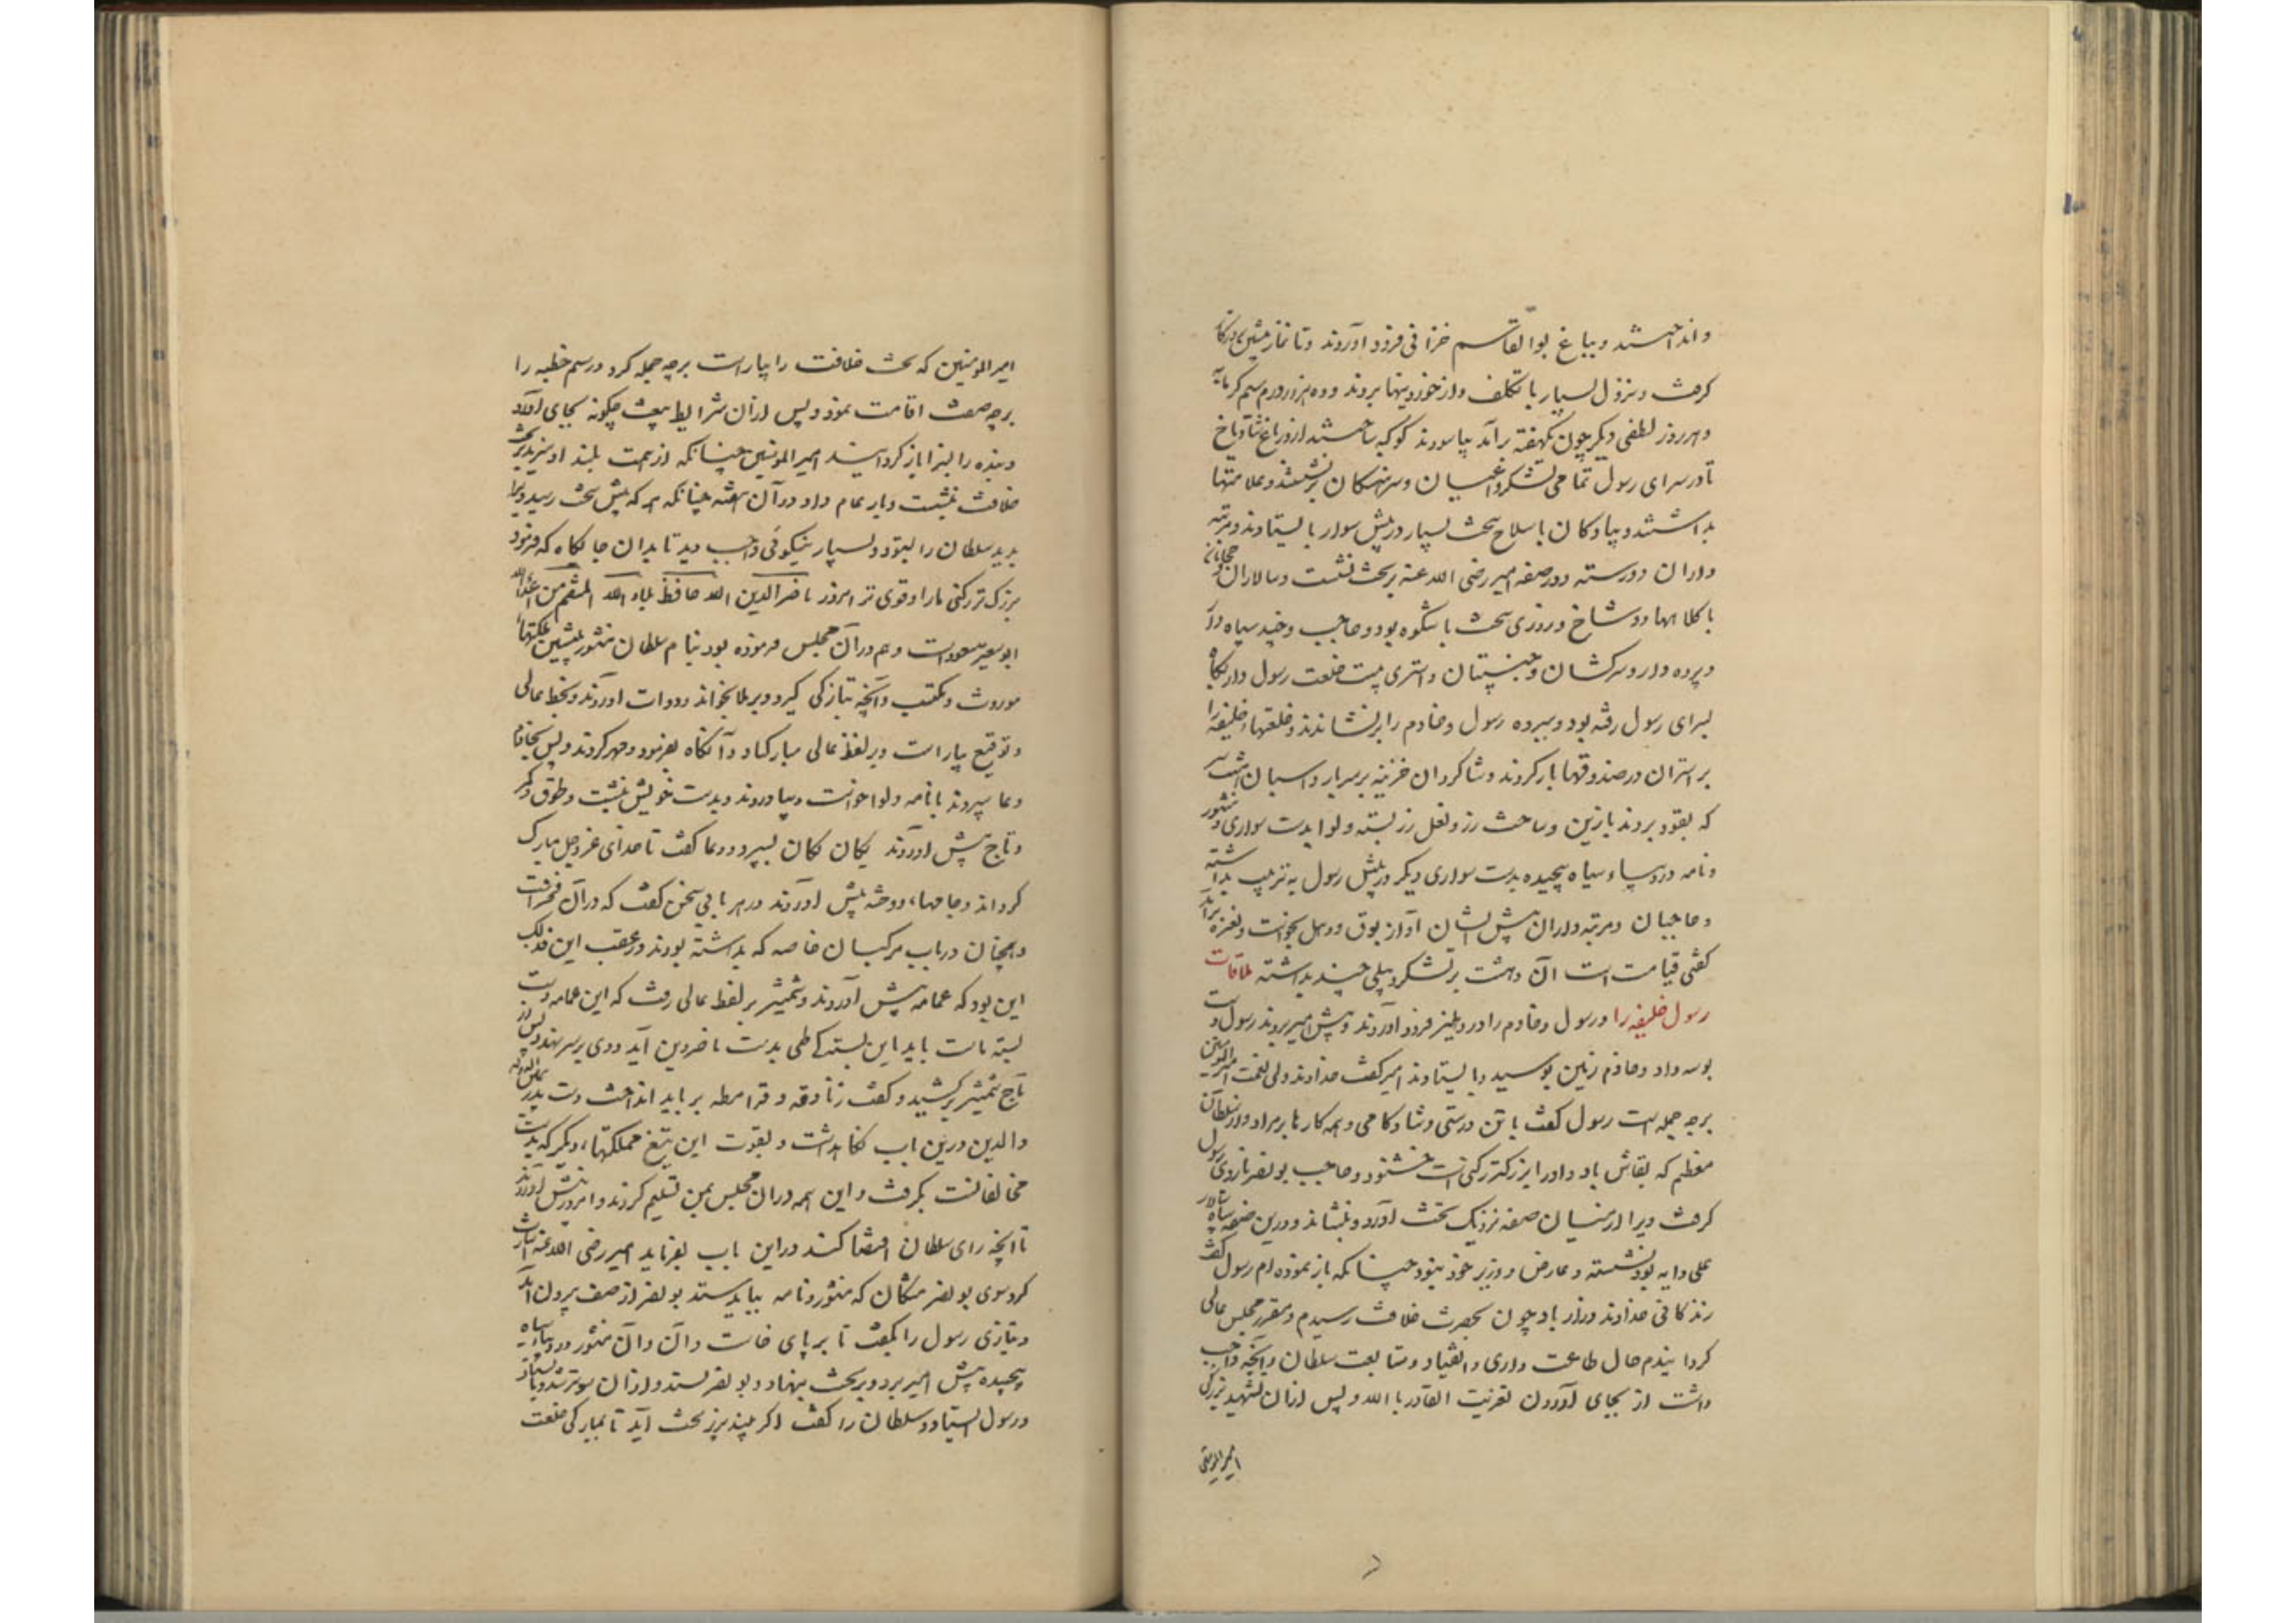 و انداختند و بباغ بوالقاسم خزانی فرود آوردند و تا نماز پیشین
گرفت و نزول بسیار با تکلف و از خوردنیها بردند و ده هزار درم سیم گرمابه
و هر روز لطفی دیگر چون یکهفته برآمد بیاسودند کوکبه ساختند از در باغ شادیاخ
تا در سرای رسول تمامی لشکر و اعیان و سرهنگان برنشستند و علامتها
بداشتند و پیادگان با سلاح سخت بسیار در پیش سوار بایستادند و مرتبه
داران دو رسته و در صفه امیر رضی الله عنه بر تخت نشست و سالاران و حجابان
با کلاهها دو شاخ و روزی سخت باشکوه بود و حاجب و چند سیاه دار
و پرده دار و سرکشان و جنیبتان و استری بیست خلعت رسول را
بسرای رسول رفته بود و ببرده رسول و خادم را برنشاندند و خلعتهاء خلیفه را
بر استران در صندوقها بار کردند و شاگردان خزینه بر سر بار و اسبان هشت سر
که بقود بردند با زین و ساخت زر و نعل زر بسته و لوا بدست سواری و منشور
و نامه در دیباء سیاه پیچیده بدست سواری دیگر در پیش رسول به ترتیب بداشته
و حاجبان و مرتبه داران پیش ایشان آواز بوق و دهل بخواست و نعره برآمد
گفتی قیامت است آن دهشت بر لشکر و پیلی چند بداشته ملاقات
رسول خلیفه را و رسول و خادم را در دهلیز فرود آوردند و پیش امیر بردند رسول دست
بوسه داد و خادم زمین بوسید و بایستادند امیر گفت خداوند ولی نعمت امیرالمومنین
برچه جمله است رسول گفت با تن درستی و شادکامی و همه کارها بر مراد و از سلطان
معظم که بقاش باد و او را بزرگتر رکنی است خشنود و حاجب بونصر بازوی رسول
گرفت و یرا از میان صفه نزدیک تخت آورد و بنشاند و در این صفه سپاه سالار
علی دایه بود نشسته و عارض و وزیر خود نبود چنانکه باز نموده ام رسول گفت
زندگانی خداوند دراز باد چون بحضرت خلافت رسیدم و مقرر مجلس عالی
گردانیدم حال طاعت داری و انقیاد و متابعت سلطان و آنچه واجب
داشت از بجای آوردن تعزیت القادر بالله و پس از آن تهنیت بزرگی
امیرالمومنین
امیرالمومنین که تخت خلافت را بیاراست برچه جمله کرد و رسم خطبه را
برچه صفت اقامت نمود و پس از آن شرایط بیعت چگونه بجای آورد
و بنده را بسزا باز گردانید امیرالمومنین چنانکه از همت بلند او سزید بر تخت
خلافت بنشست و بار عام داد در آن هفته چنانکه هر که پیش تخت رسید ویرا
بدید سلطان را بستود و بسیار نیکوئی واجب دید تا بدان جایگاه که فرمود
بزرگ تر رکنی ما را و قوی تر امروز ناصر الدین الله حافظ بلاد الله المنتقم من اعداء الله
ابوسعید مسعود است و هم در آن مجلس فرموده بود بنام سلطان منشور نبشتن مملکتها
موروث و مکتسب و آنچه بتازگی گیرد و بر ملا بخواند و دوات آوردند و بخط عالی
و توقیع بیاراست و بر لفظ عالی مبارکباد و آنگاه بفرمود و مهر کردند و پس بخادم
دعا سپردند با نامه و لوا خواست و بیاوردند و بدست خویش ببست و طوق و کمر
و تاج پیش آوردند یکان یکان بسپرد و دعا گفت تا خدای عز و جل مبارک
گرداند و جامهاء دوخته پیش آوردند در هر بابی سخن گفت که در آن فخر است
و همچنان در باب مرکبان خاصه که بداشته بودند و در عقب این فذلک
این بود که عمامه پیش آوردند و شمشیر بر لفظ عالی رفت که این عمامه دست
بسته ماست باید این بستگی بدست ناصر دین آید و وی بر سر نهد پس از
تاج شمشیر برکشید و گفت زنادقه و قرامطه بر باید انداخت و سنت پدر یمین الدوله
والدین درین باب نگاهداشت و بقوت این تیغ مملکتهاء دیگر که بدست
مخالفانست بگرفت و این همه در آن مجلس بمن تسلیم کردند و امروز پیش آوردند
تا آنچه رای سلطان اقتضا کند در این باب بفرماید امیر رضی الله عنه اشارت
کرد سوی بونصر مشکان که منشور و نامه بباید ستد بونصر از صف بیرون آمد
و بتازی رسول را بگفت تا بر پای خاست و آن منشور در دیباء سیاه
پیچیده پیش امیر برد و بر تخت بنهاد و بونصر بستد و از آن سوتر شد و بایستاد
و رسول ایستاد و سلطان را گفت اگر بیند بزیر تخت آید تا بمبارکی خلعت